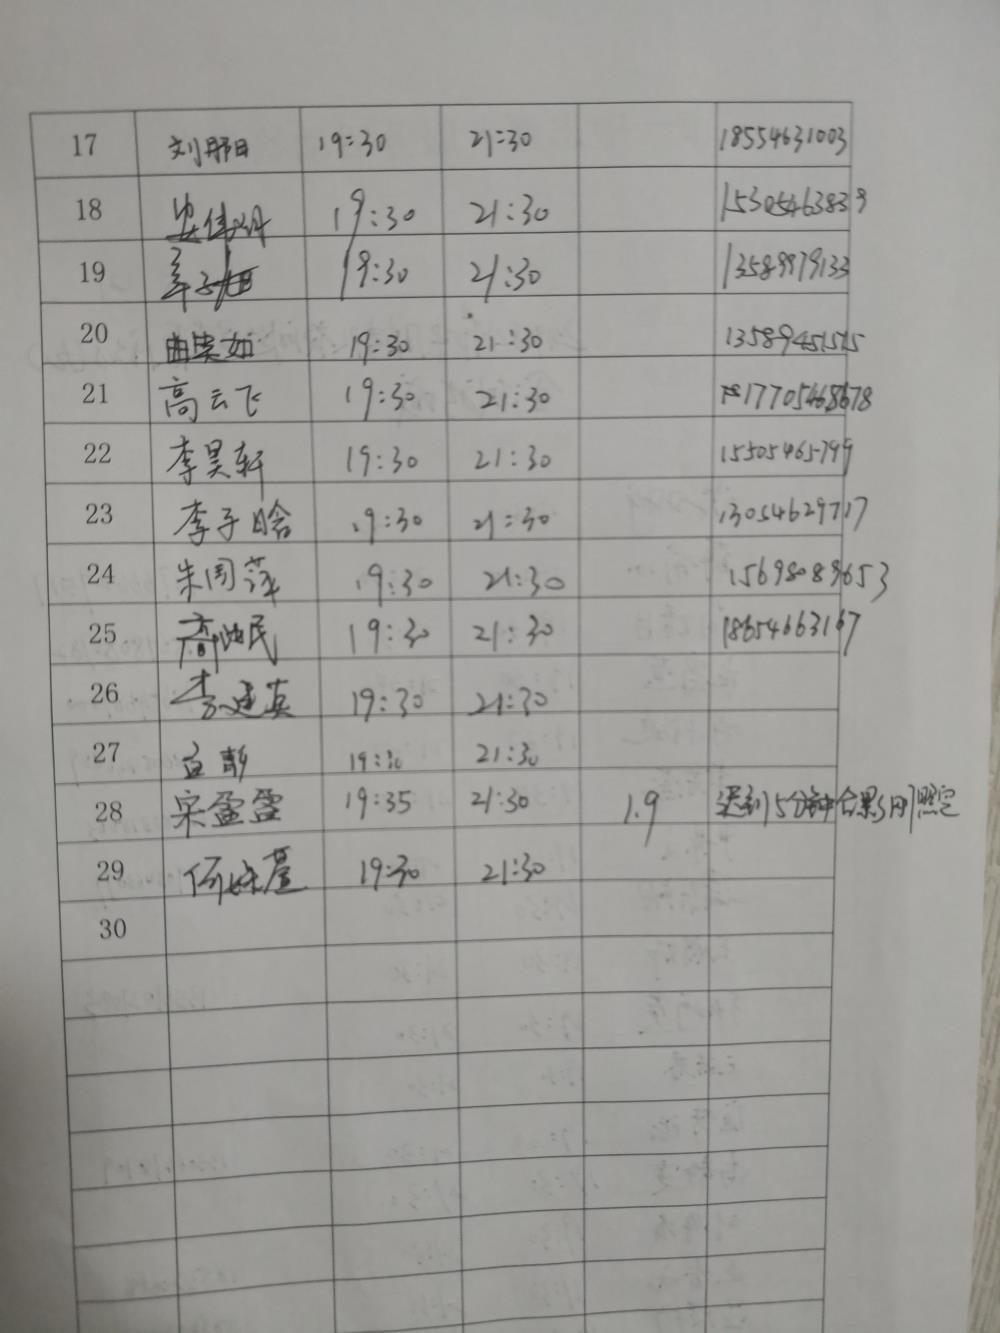 17 刘那日 19:30 21:30 18554631003
18 安伟丹 19:30 21:30 15305463839
19 辛子 19:30 21:30 13589979133
20 曲安如 19:30 21:30 13589451515
21 高云飞 19:30 21:30 17705468678
22 李昊轩 19:30 21:30 15505465799
23 李子晗 19:30 21:30 13054629717
24 朱周萍 19:30 21:30 15698089653
25 高 民 19:30 21:30 18654663167
26 李建英 19:30 21:30
27 19:30 21:30
28 宋盈盈 19:35 21:30 1.9 迟到5分钟
29 何 19:30 21:30
30